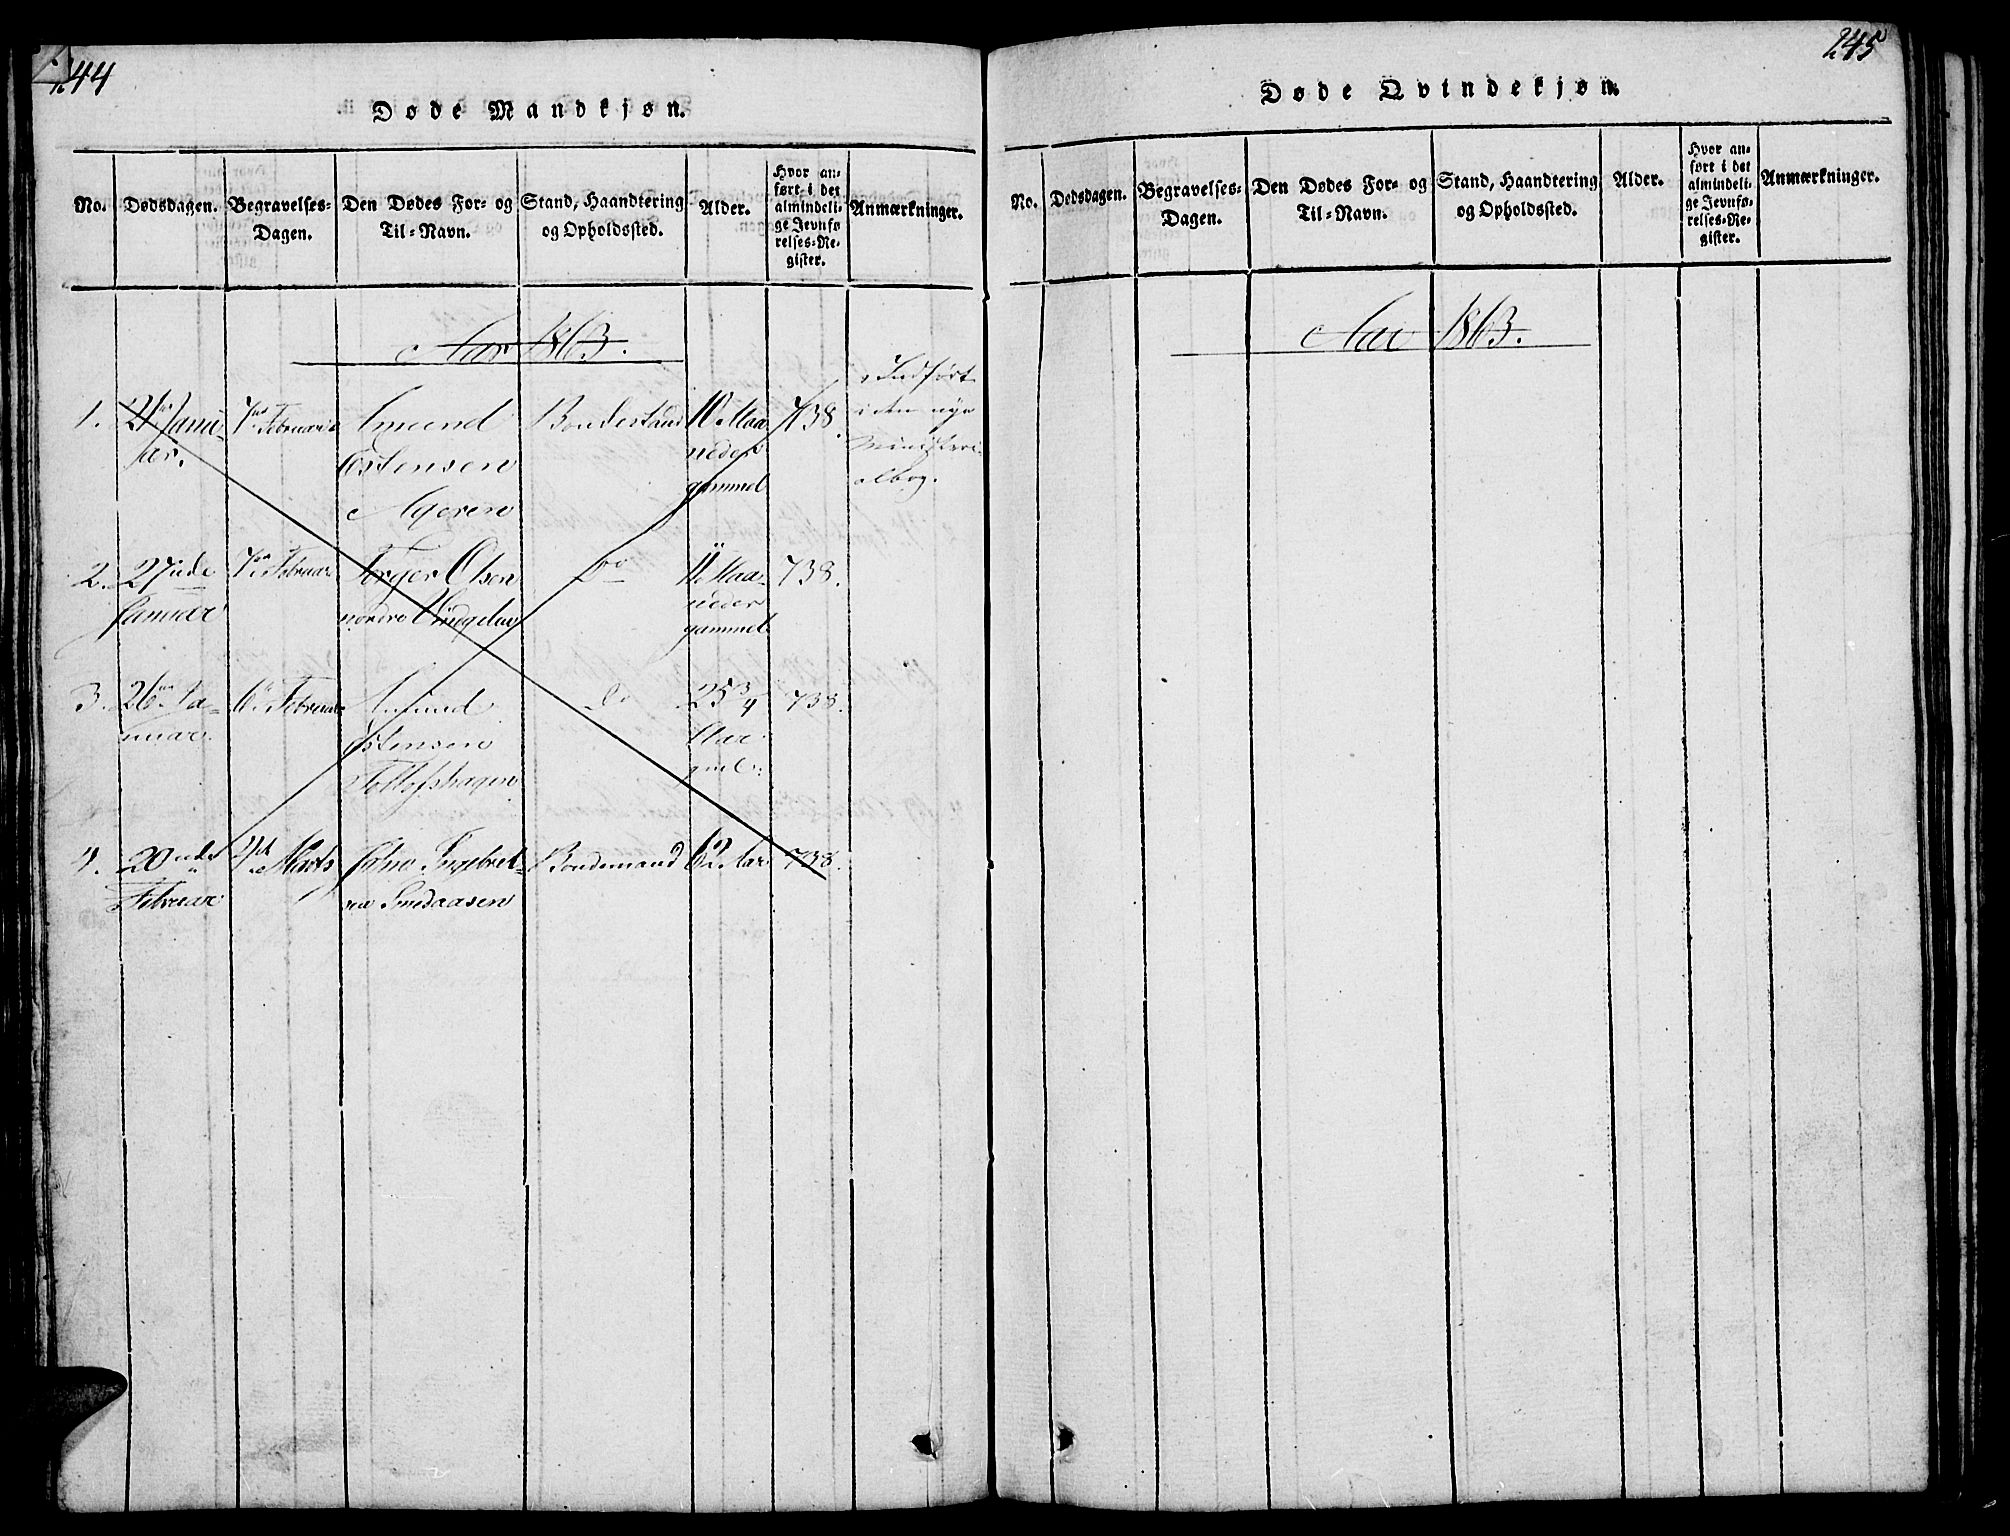 244
Døde Mandkjøn.
No.
Dødsdagen.
Begravelses-
Dagen.
Den Dødes For- og
Til-Navn.
Stand, Haandtering
og Opholdssted.
Alder.
Hvor an-
ført i det
almindeli-
ge Jevnfø-
relses-Re-
gister.
Anmærkninger.
Aar 1863.
1.
21de Janu-
ar.
7de Februar
Amund
Østensen
Ageren
Bondestand
10 Maa-
neder
gammel
738.
Indført
i den nye
Ministeri-
albog.
2.
27nde
Januar
7de Februar
Torger Olsen
nordre Vingelen
Do
11 Maa-
neder
gammel
738.
3.
26de Ja-
nuar.
6te Februar
Amund
Østensen
Tollofshagen
Do
25 3/4
Aar
gml.
738.
4.
20nde
Februar
2den Marts
John Ingebret-
sen Smedaasen
Bondemand
62 Aar
738.
245
Døde Qvindekjøn.
No.
Dødsdagen.
Begravelses-
Dagen.
Den Dødes For- og
Til-Navn.
Stand, Haandtering
og Opholdssted.
Alder.
Hvor an-
ført i det
almindeli-
ge Jevnfø-
relses-Re-
gister.
Anmærkninger.
Aar 1863.